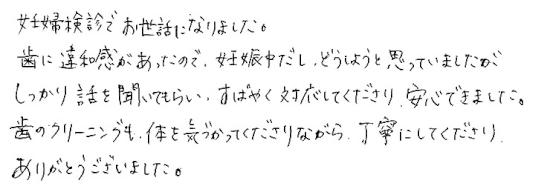 妊婦検診でお世話になりました。
歯に違和感があったので、妊娠中だし、どうしようと思っていましたが
しっかり話を聞いてもらい、すばやく対応してくださり、安心できました。
歯のクリーニングも、体を気づかってくださりながら、丁寧にしてくださり、
ありがとうございました。